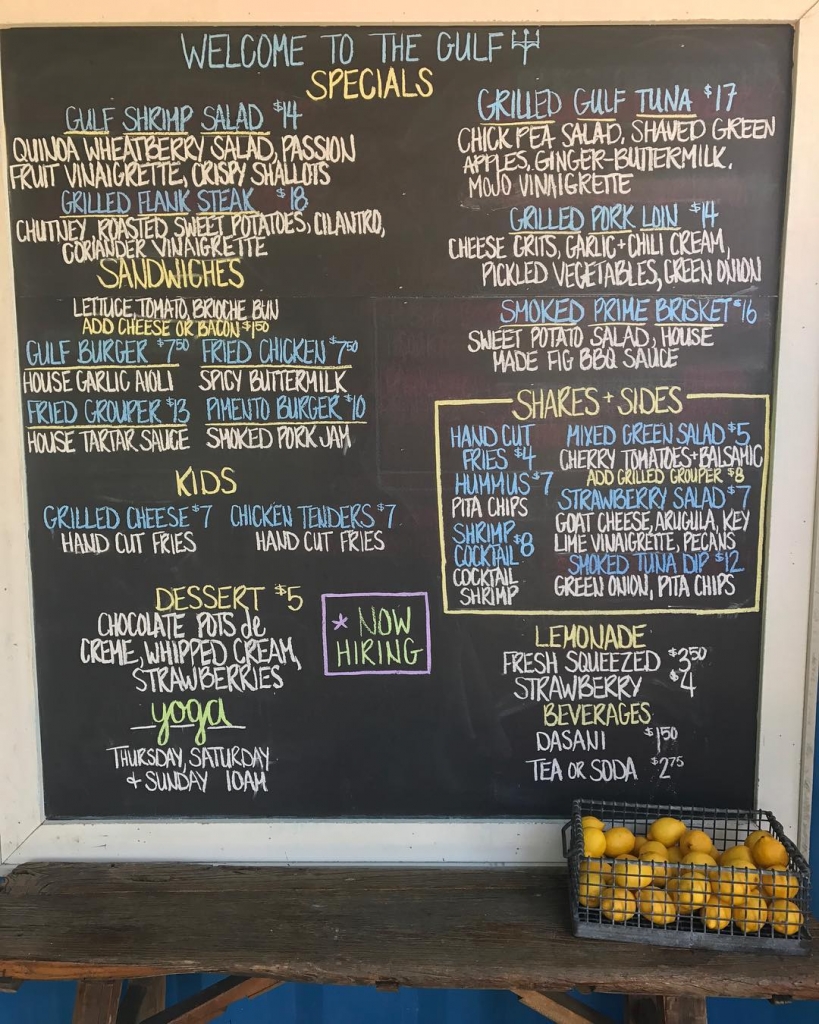 WELCOME TO THE GULF
SPECIALS
GULF SHRIMP SALAD $14
QUINOA WHEATBERRY SALAD, PASSION
FRUIT VINAIGRETTE, CRISPY SHALLOTS
GRILLED FLANK STEAK $18
CHUTNEY, ROASTED SWEET POTATOES, CILANTRO,
CORIANDER VINAIGRETTE
GRILLED GULF TUNA $17
CHICK PEA SALAD, SHAVED GREEN
APPLES, GINGER-BUTTERMILK,
MOJO VINAIGRETTE
GRILLED PORK LOIN $14
CHEESE GRITS, GARLIC + CHILI CREAM,
PICKLED VEGETABLES, GREEN ONION
SMOKED PRIME BRISKET $16
SWEET POTATO SALAD, HOUSE
MADE FIG BBQ SAUCE
SANDWICHES
LETTUCE, TOMATO, BRIOCHE BUN
ADD CHEESE OR BACON $1.50
GULF BURGER $7.50 FRIED CHICKEN $7.50
HOUSE GARLIC AIOLI SPICY BUTTERMILK
FRIED GROUPER $13 PIMENTO BURGER $10
HOUSE TARTAR SAUCE SMOKED PORK JAM
KIDS
GRILLED CHEESE $7 CHICKEN TENDERS $7
HAND CUT FRIES HAND CUT FRIES
SHARES + SIDES
HAND CUT
FRIES $4
HUMMUS $7
PITA CHIPS
SHRIMP
COCKTAIL $8
COCKTAIL
SHRIMP
MIXED GREEN SALAD $5
CHERRY TOMATOES + BALSAMIC
ADD GRILLED GROUPER $8
STRAWBERRY SALAD $7
GOAT CHEESE, ARUGULA, KEY
LIME VINAIGRETTE, PECANS
SMOKED TUNA DIP $12
GREEN ONION, PITA CHIPS
DESSERT $5
CHOCOLATE POTS de
CREME, WHIPPED CREAM,
STRAWBERRIES
* NOW
HIRING
yoga
THURSDAY, SATURDAY
+ SUNDAY 10AM
LEMONADE
FRESH SQUEEZED $3.50
STRAWBERRY $4
BEVERAGES
DASANI $1.50
TEA OR SODA $2.75